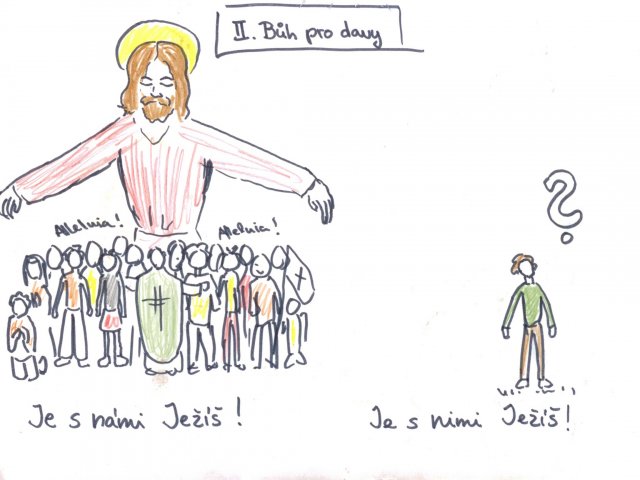 II. Bůh pro davy
Alleluia!
Alleluia!
?
Je s námi Ježíš!
Je s nimi Ježíš!